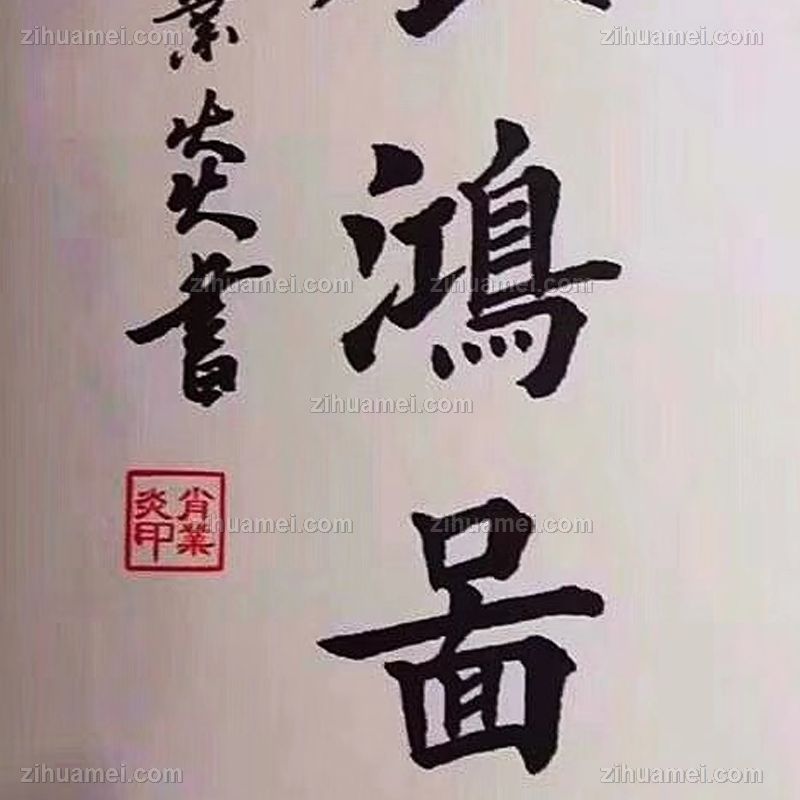 鴻圖
業炎書
肖業炎印
zihuamei.com
zihuamei.com
zihuamei.com
zihuamei.com
zihuamei.com
zihuamei.com
zihuamei.com
zihuamei.com
zihuamei.com